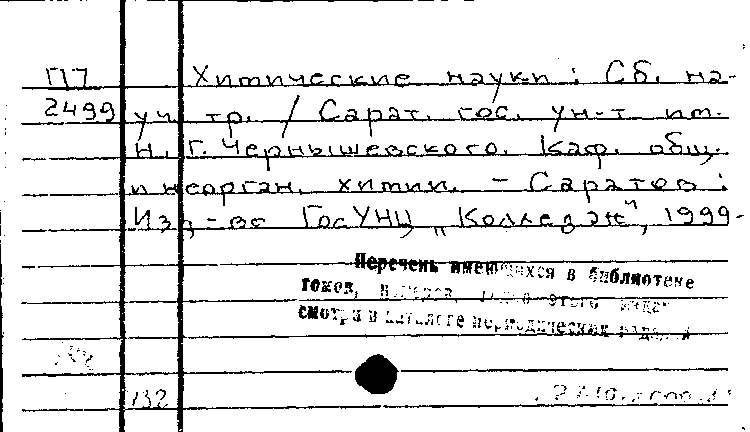 П7 Химические науки : Сб. на-
2499 уч. тр. / Сарат. гос. ун-т им.
Н. Г. Чернышевского. Каф. общ.
и неорган. химии. – Саратов :
Изд-во ГосУНЦ „Колледж", 1999-
Перечень имеющихся в библиотеке
томов, этого
смотри в каталоге периодических
732